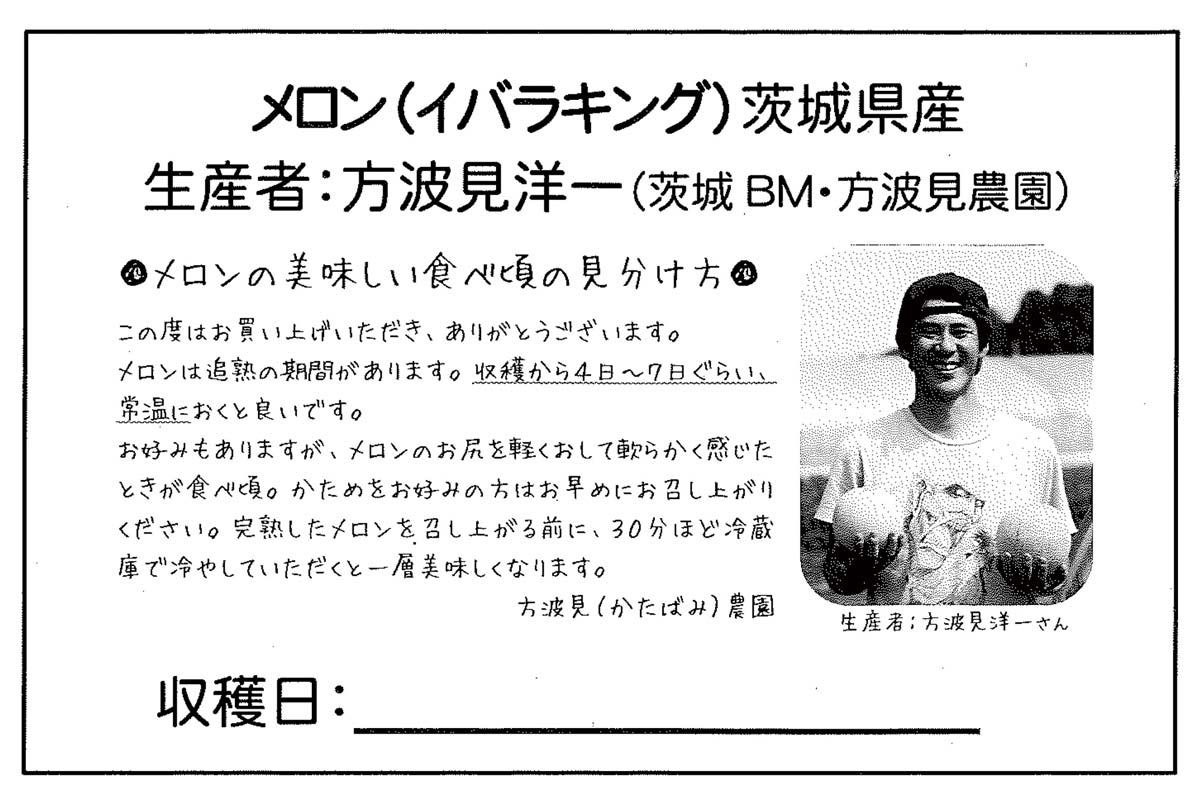 メロン(イバラキング)茨城県産
生産者:方波見洋一(茨城BM・方波見農園)
メロンの美味しい食べ頃の見分け方
この度はお買い上げいただき、ありがとうございます。
メロンは追熟の期間があります。収穫から4日〜7日ぐらい、
常温におくと良いです。
お好みもありますが、メロンのお尻を軽くおして軟らかく感じた
ときが食べ頃。かためをお好みの方はお早めにお召し上がり
ください。完熟したメロンを召し上がる前に、30分ほど冷蔵
庫で冷やしていただくと一層美味しくなります。
方波見(かたばみ)農園
生産者:方波見洋一さん
収穫日: